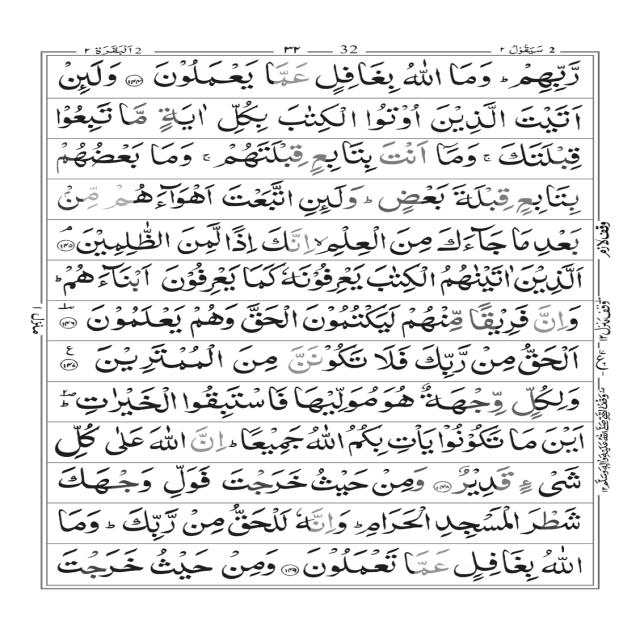 2 سَيَقُوْلُ ٢ — 32 — ٣٢ — 2 اَلْبَقَرَة ٢
رَّبِّهِمْ ؕ وَمَا اللّٰهُ بِغَافِلٍ عَمَّا يَعْمَلُوْنَ ﴿۱۴۴﴾ وَلَٮِٕنْ
اَتَيْتَ الَّذِيْنَ اُوْتُوا الْكِتٰبَ بِكُلِّ اٰيَةٍ مَّا تَبِعُوْا
قِبْلَتَكَ ۚ وَمَاۤ اَنْتَ بِتَابِعٍ قِبْلَتَهُمْ ۚ وَمَا بَعْضُهُمْ
بِتَابِعٍ قِبْلَةَ بَعْضٍ ؕ وَلَٮِٕنِ اتَّبَعْتَ اَهْوَآءَهُمْ مِّنْۢ
بَعْدِ مَا جَآءَكَ مِنَ الْعِلْمِ ۙ اِنَّكَ اِذًا لَّمِنَ الظّٰلِمِيْنَ ﴿۱۴۵﴾ ۘ
اَلَّذِيْنَ اٰتَيْنٰهُمُ الْكِتٰبَ يَعْرِفُوْنَهٗ كَمَا يَعْرِفُوْنَ اَبْنَآءَهُمْ ؕ
وَاِنَّ فَرِيْقًا مِّنْهُمْ لَيَكْتُمُوْنَ الْحَقَّ وَهُمْ يَعْلَمُوْنَ ﴿۱۴۶﴾ ؔ
اَلْحَقُّ مِنْ رَّبِّكَ فَلَا تَكُوْنَنَّ مِنَ الْمُمْتَرِيْنَ ﴿۱۴۷﴾ ع
وَلِكُلٍّ وِّجْهَةٌ هُوَ مُوَلِّيْهَا فَاسْتَبِقُوا الْخَيْرٰتِ ؕ ؔ
اَيْنَ مَا تَكُوْنُوْا يَاْتِ بِكُمُ اللّٰهُ جَمِيْعًا ؕ اِنَّ اللّٰهَ عَلٰى كُلِّ
شَىْءٍ قَدِيْرٌ ﴿۱۴۸﴾ وَمِنْ حَيْثُ خَرَجْتَ فَوَلِّ وَجْهَكَ
شَطْرَ الْمَسْجِدِ الْحَرَامِ ؕ وَاِنَّهٗ لَلْحَقُّ مِنْ رَّبِّكَ ؕ وَمَا
اللّٰهُ بِغَافِلٍ عَمَّا تَعْمَلُوْنَ ﴿۱۴۹﴾ وَمِنْ حَيْثُ خَرَجْتَ
وقف لازم
منزل ۱